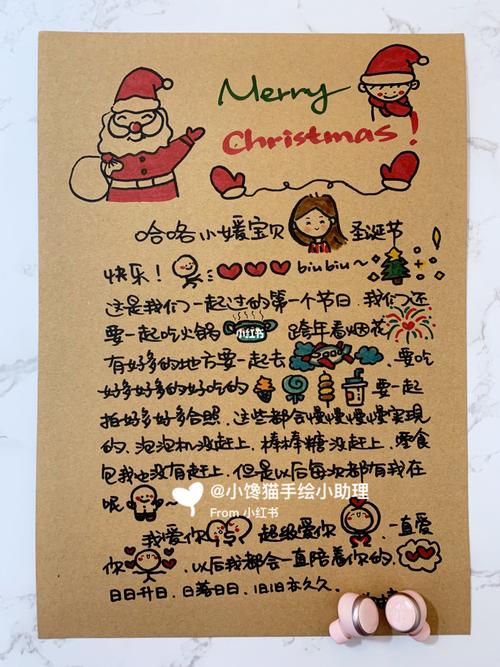 Merry
Christmas!
哈咯小媛宝贝 圣诞节
快乐! biubiu~
这是我们一起过的第一个节日,我们还
要一起吃火锅 小红书 跨年看烟花
有好多的地方要一起去 ,要吃
好多好多的好吃的 要一起
拍好多好多合照,这些都会慢慢慢慢实现
的,泡泡机没赶上,棒棒糖没赶上,零食
包我也没有赶上,但是以后每次都有我在
呢 ~
@小馋猫手绘小助理
From 小红书
我爱你 超级爱你 ,一直爱
你 ,以后我都会一直陪着你的,
日日升日,日落日日,旧旧亦久久.